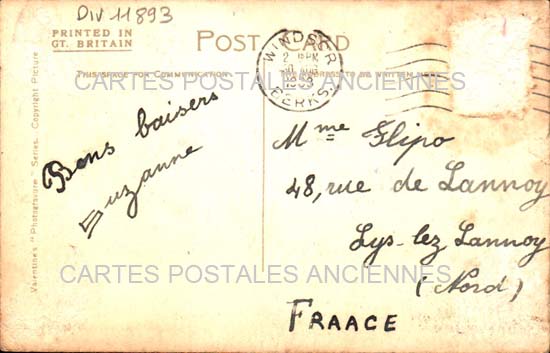 DIV 11893
PRINTED IN
GT. BRITAIN
POST CARD
THIS SPACE FOR COMMUNICATION
ADDRESS TO BE WRITTEN
WINDSOR
BERKS.
Valentine's "Photogravure" Series. Copyright Picture
Bons baisers
Suzanne
Mme Flipo
48, rue de Lannoy
Lys-lez Lannoy
(Nord)
FRAACE
CARTES POSTALES ANCIENNES
CARTES POSTALES ANCIENNES